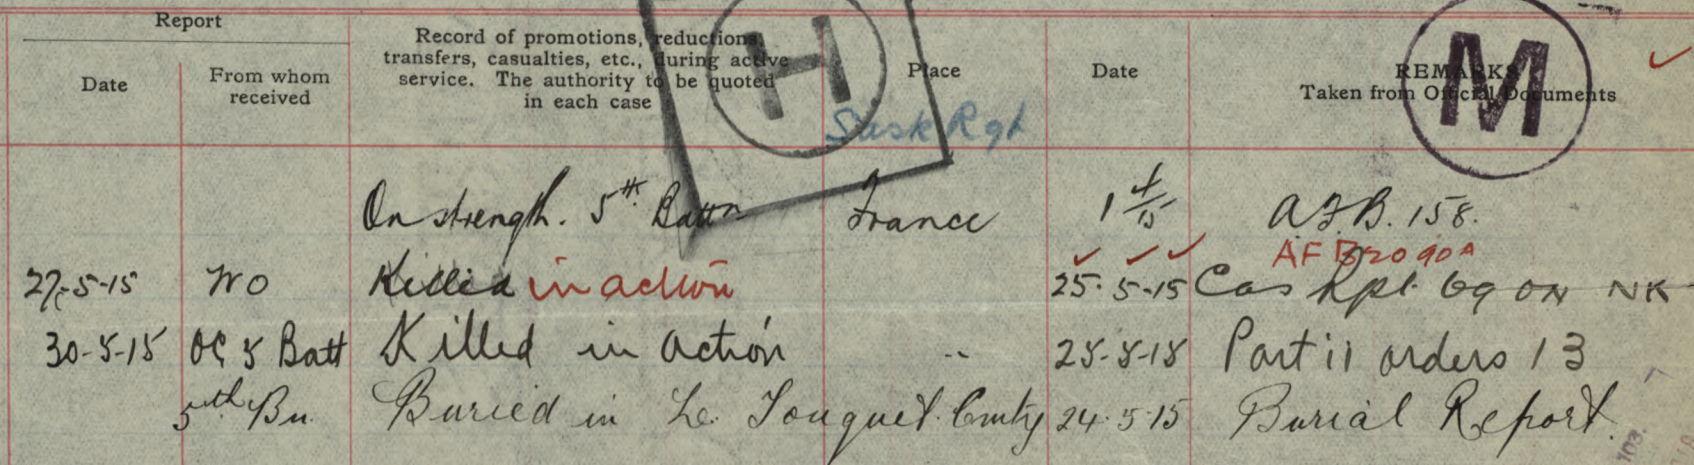 Report
Date
From whom
received
Record of promotions, reductions,
transfers, casualties, etc., during active
service. The authority to be quoted
in each case
Place
Date
REMARKS
Taken from Official Documents
H
M
Sask Rgt
On strength. 5th Battn France 1 4/15 A.F.B. 158.
AF B2090A
27-5-15 WO Killed in action 25-5-15 Cas Rpt 69 ON NK
30-5-15 OC 5 Batt Killed in action -- 25-5-15 Part ii orders 13
5th Bn. Buried in Le Touquet Cmty 24-5-15 Burial Report.
103.